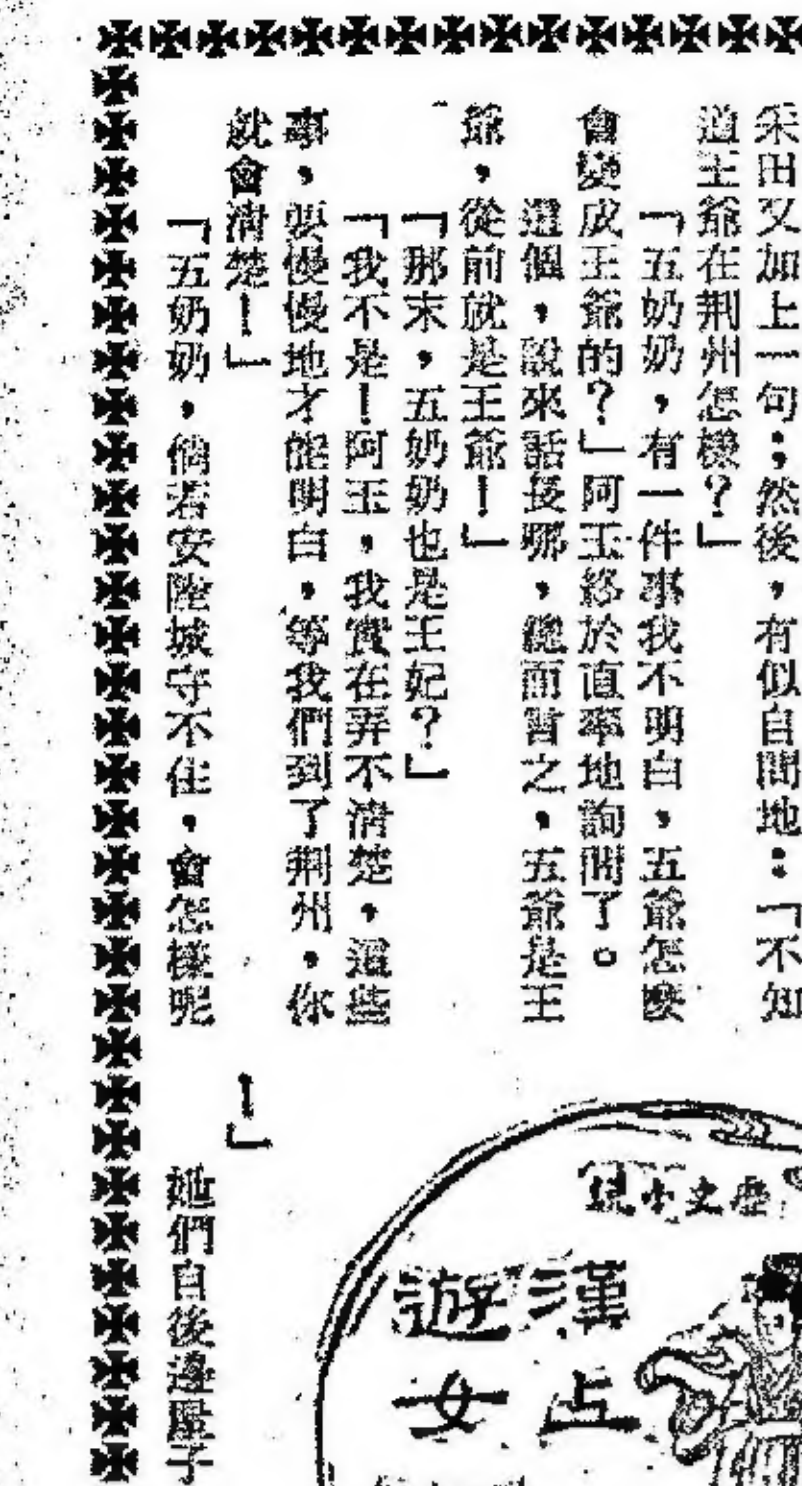 采田又加上一句;然後,有似自問地:「不知
道王爺在荆州怎樣?」
「五奶奶,有一件事我不明白,五爺怎麼
會變成王爺的?」阿玉終於直率地詢問了。
這個,說來話長哪,總而言之,五爺是王
爺,從前就是王爺!」
「那末,五奶奶也是王妃?」
「我不是!阿玉,我實在弄不清楚,這些
事,要慢慢地才能明白,等我們到了荆州,你
就會清楚!」
「五奶奶,倘若安陸城守不住,會怎樣呢
!」
她們自後邊屋子
歷史小說
漢上
遊女